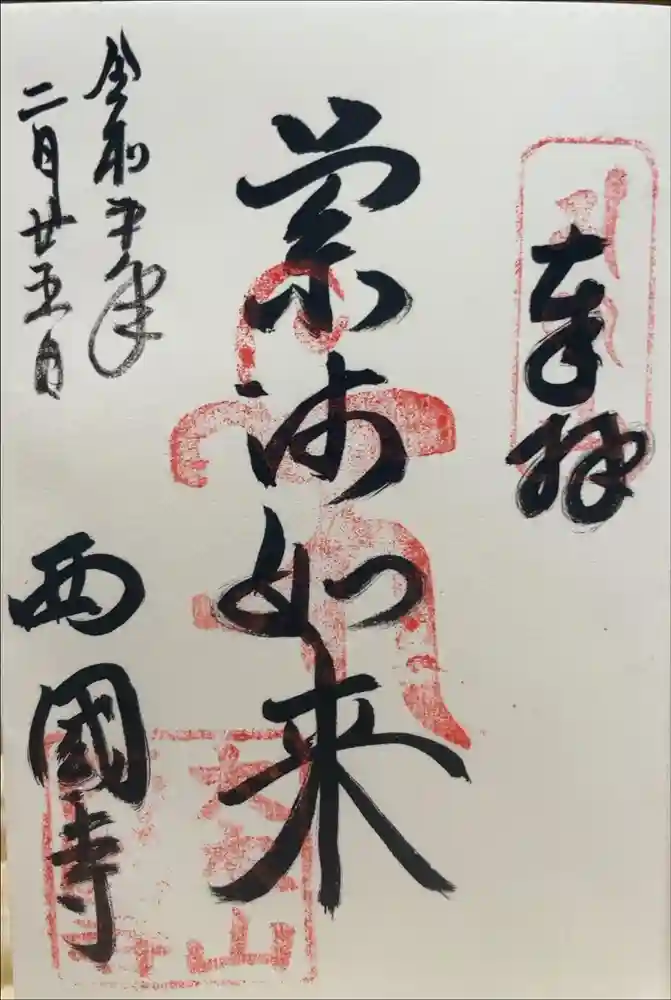 奉拝
薬師如来
令和五年
二月廿五日
西國寺